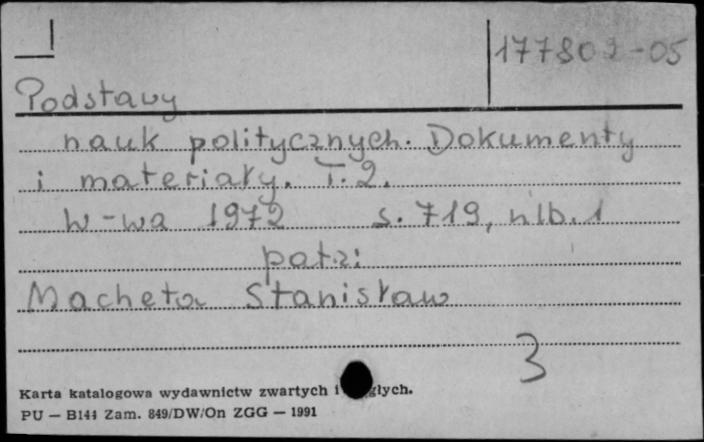 177802-05
Podstawy
nauk politycznych. Dokumenty
i materiały. T. 2.
W-wa 1972 s. 719, nlb. 1
patrz:
Macheta Stanisław
3
Karta katalogowa wydawnictw zwartych i
PU — B144 Zam. 849/DW/On ZGG — 1991